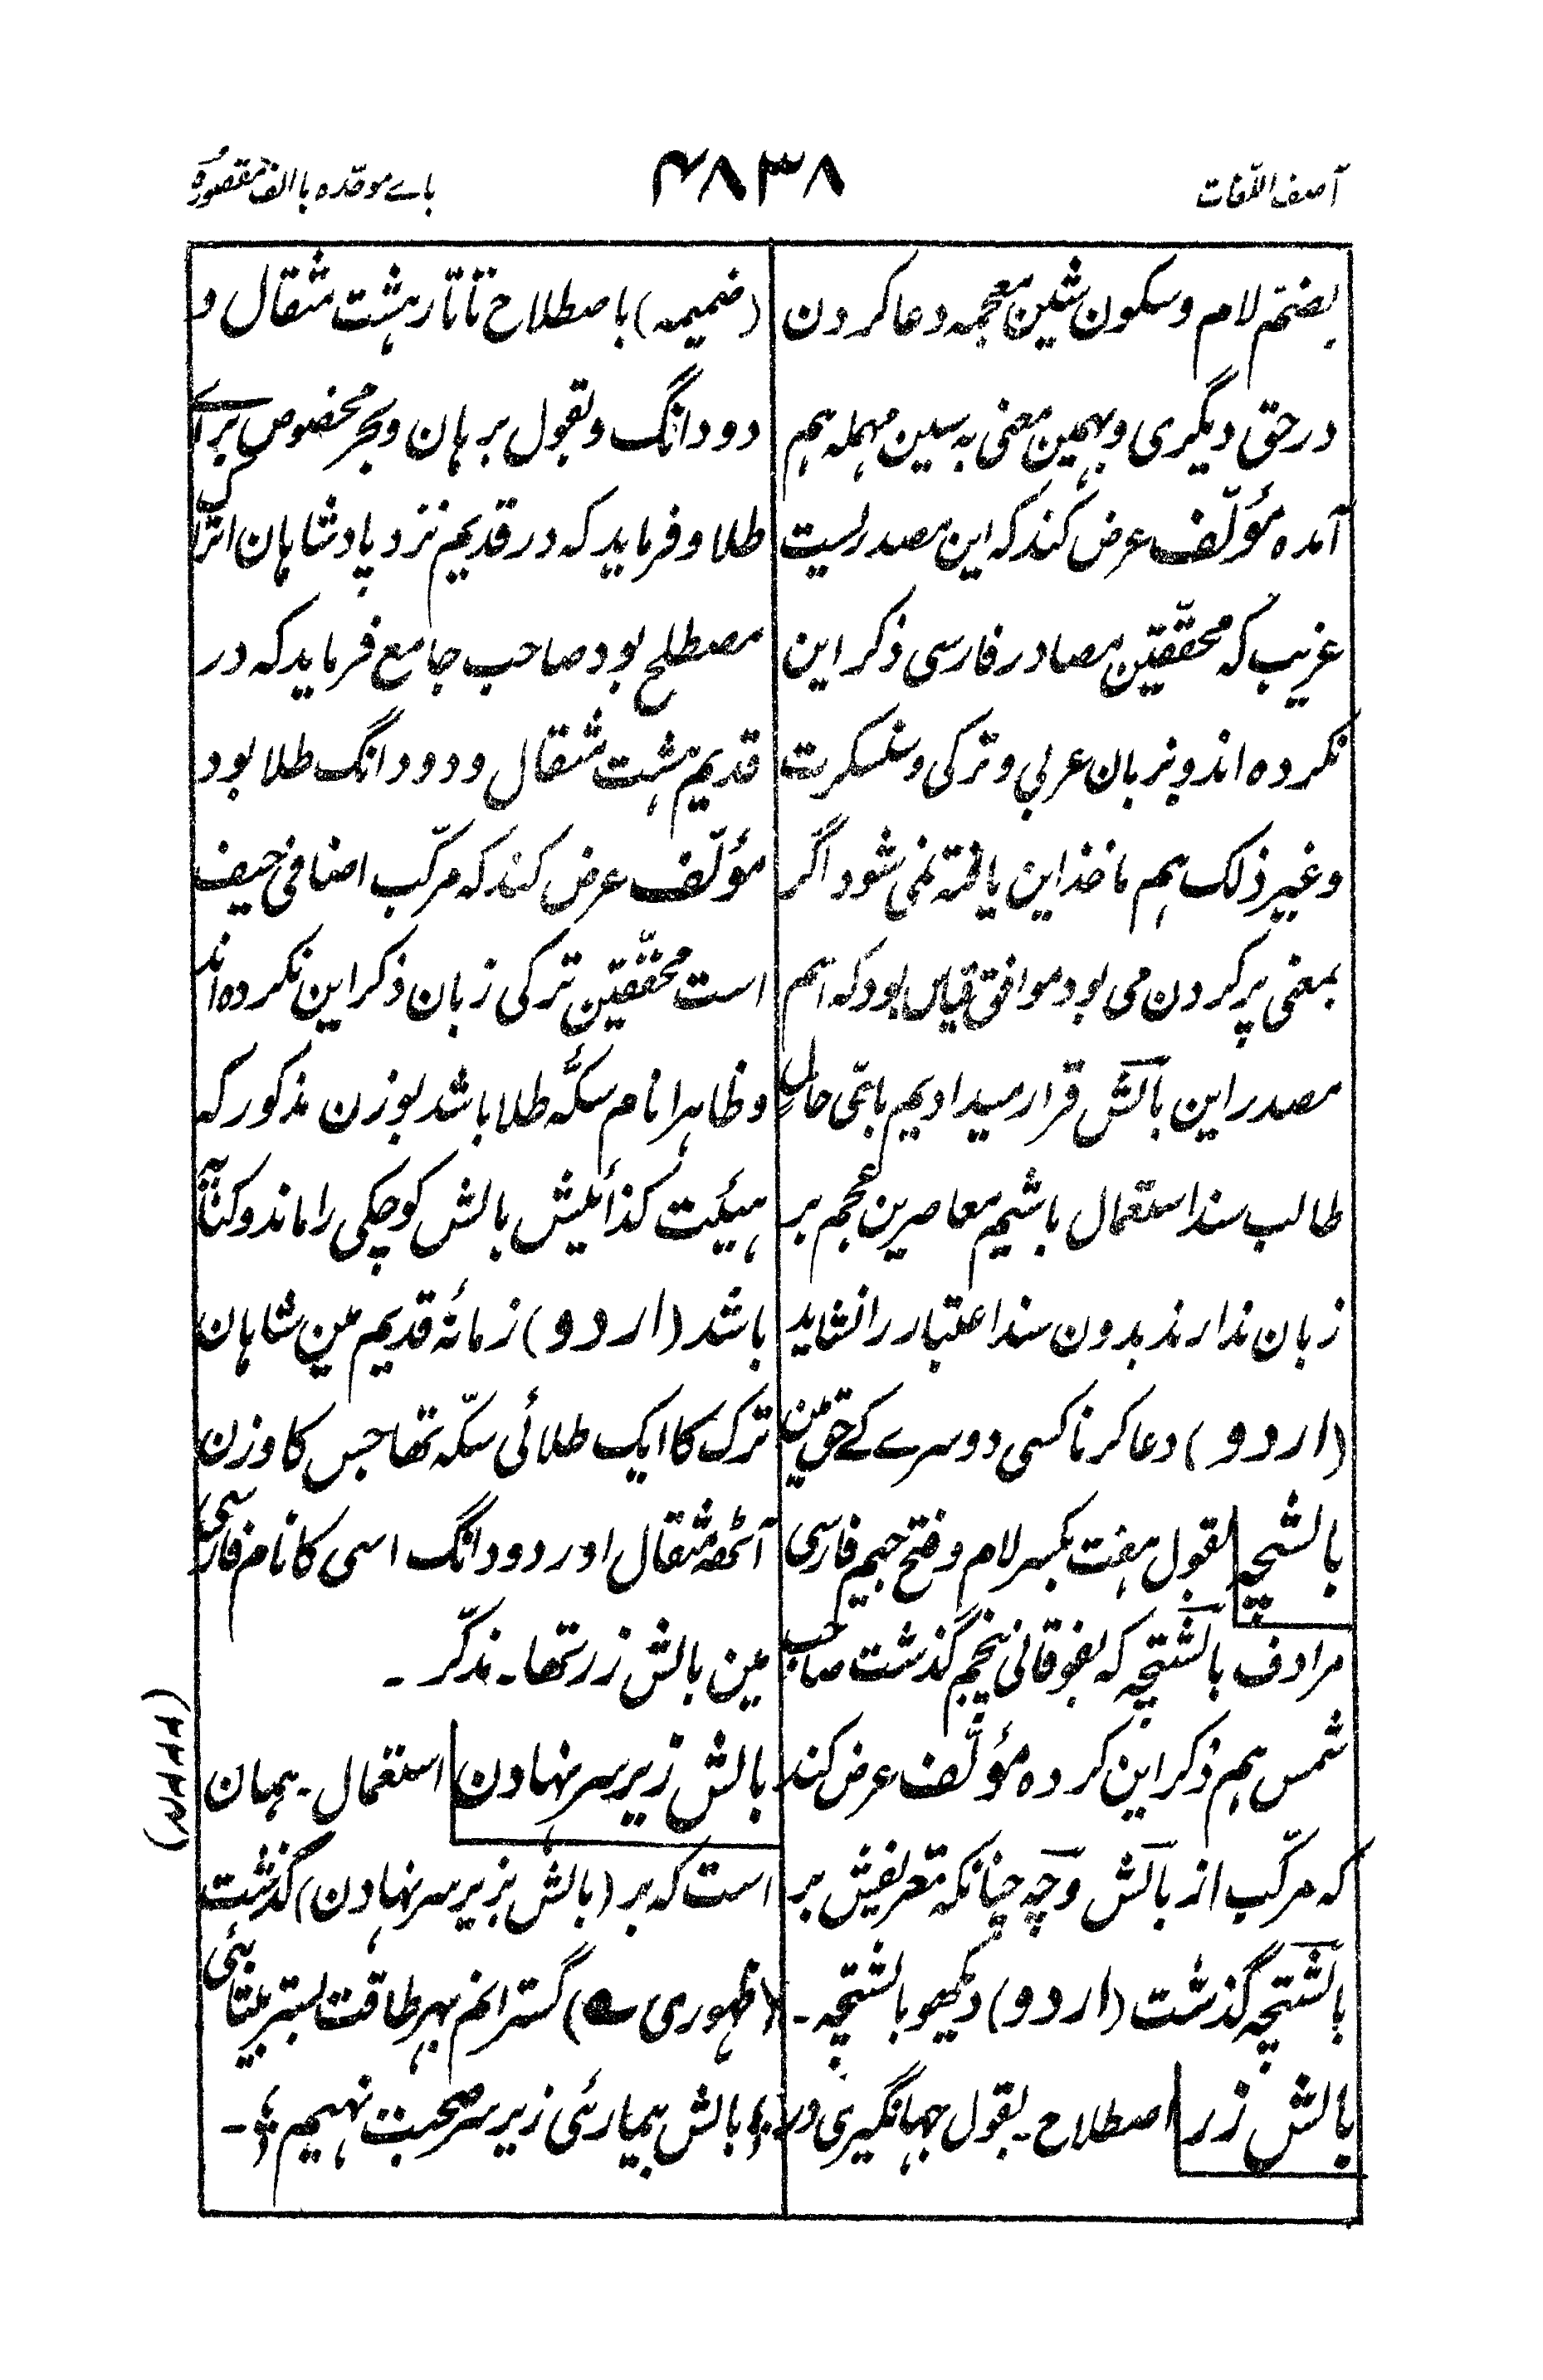 آصف اللّغات
۴۸۳۸
باے موحّدہ با الف مقصورہ
بضمّ لام و سکون شین معجمہ دعا کردن
در حق دیگری و بہمین معنی بہ سین مہملہ ہم
آمدہ مؤلّف عرض کند کہ این مصدریست
غریب کہ محقّقین مصادر فارسی ذکر این
نکردہ اند و بزبان عربی و ترکی و سنسکرت
و غیر ذلک ہم ماخذ این یافتہ نمی شود اگر
بمعنی پر کردن می بود موافق قیاس بود کہ اسم
مصدر این بالش قرار میدادیم باتی حال
طالب سند استعمال باشیم معاصرین عجم بر
زبان ندارند بدون سند اعتبار را نشاید
(اردو) دعا کرنا کسی دوسرے کے حق مین
بالشچہ بقول ہفت بکسر لام و فتح جیم فارسی
مرادف بالشتچہ کہ بفوقانی پنجم گذشت صاحب
شمس ہم ذکر این کردہ مؤلّف عرض کند
کہ مرکّب از بالش و چہ چنانکہ تعریفش بر
بالشتچہ گذشت (اردو) دیکھو بالشتچہ۔
بالش زر اصطلاح۔ بقول جہانگیری در
(ضمیمہ) باصطلاح تاتار ہشت مثقال و
دو دانگ و بقول برہان و بحر مخصوص براے
طلا و فرماید کہ در قدیم نزد پادشاہان اتراک
مصطلح بود صاحب جامع فرماید کہ در
قدیم ہشت مثقال و دو دانگ طلا بود
مؤلّف عرض کند کہ مرکّب اضافی حیف
است محقّقین ترکی زبان ذکر این نکردہ اند
و ظاہرا نام سکّۂ طلا باشد بوزن مذکور کہ
ہیئت کذائیش بالش کوچکی را ماند و کنایۃً
باشد (اردو) زمانۂ قدیم مین شاہان
ترک کا ایک طلائی سکّہ تھا جس کا وزن
آٹھ مثقال اور دو دانگ اسی کا نام فارسی
مین بالش زر تھا۔ مذکّر ۔
بالش زیر سر نہادن استعمال۔ ہمان
است کہ بر (بالش بزیر سر نہادن) گذشت
(ظہوری ؎) گسترانم بہر طاقت بستر بیتابئی
؛ بالش بیمارئی زیر سر صحبت نہیم ؛ ۔